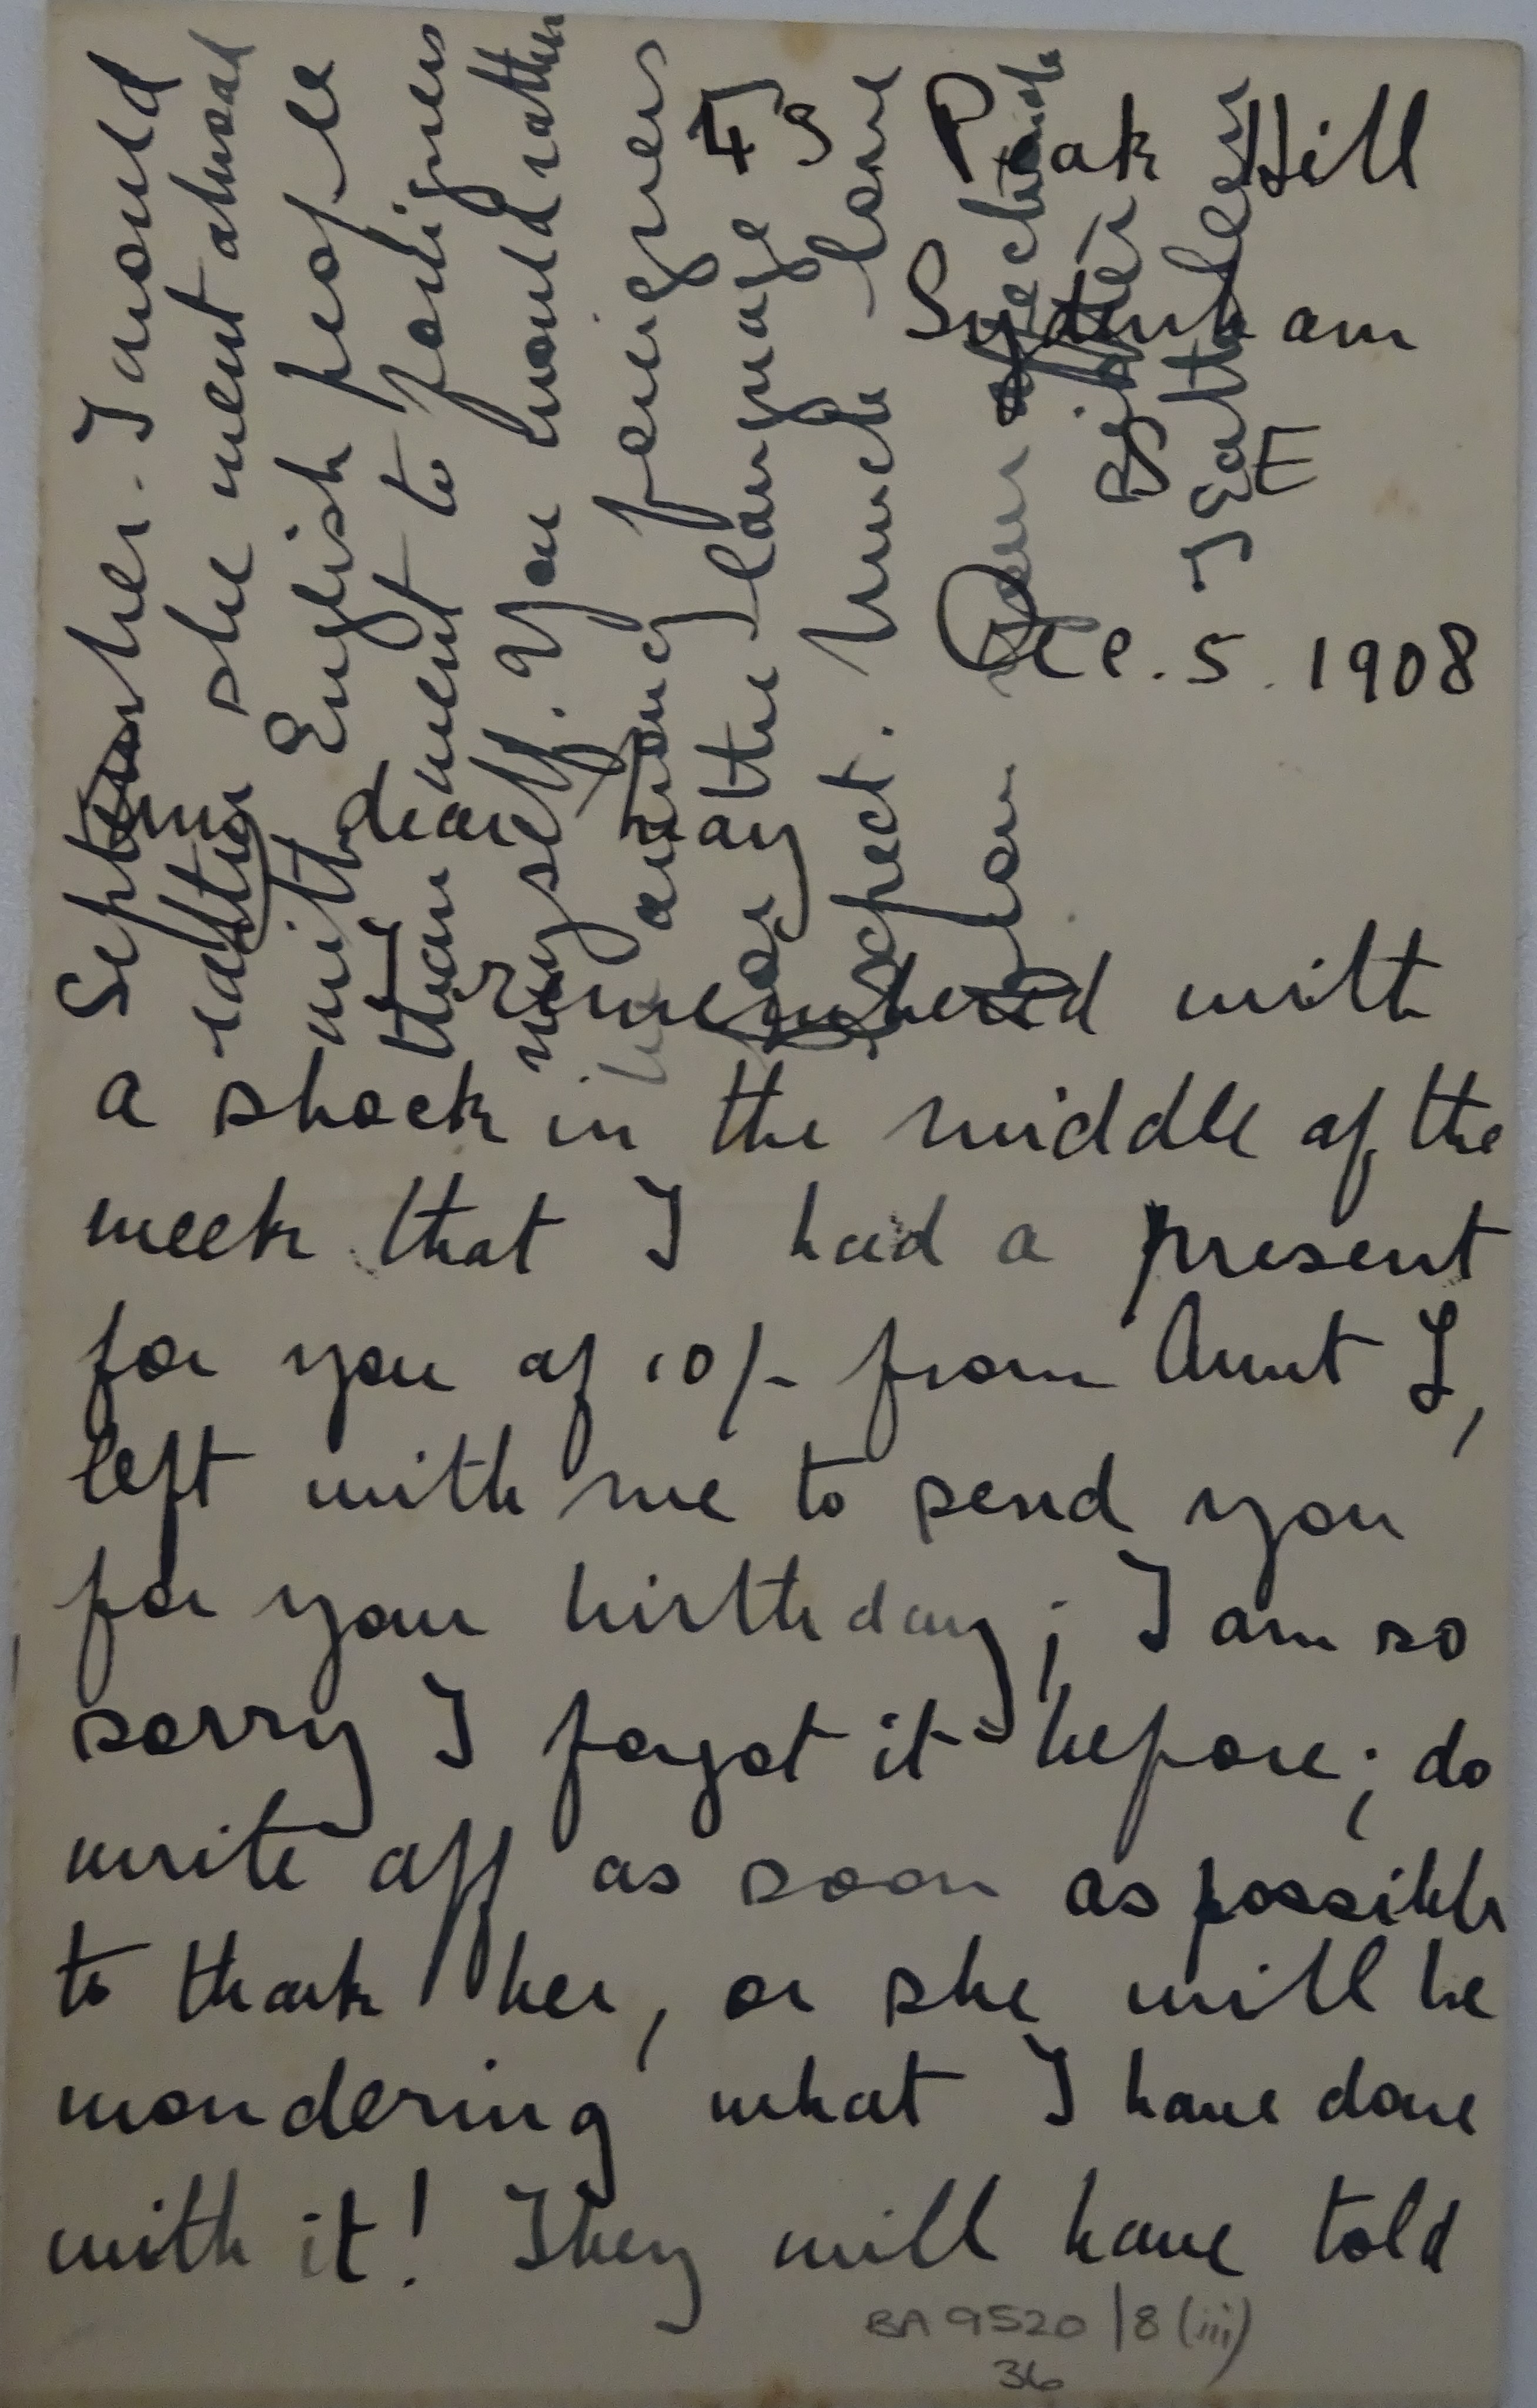 43 Peak Hill
Sydenham
S E
Dec. 5. 1908
My dear May
I remembered with
a shock in the middle of the
week that I had a present
for you of 10/- from Aunt L,
left with me to send you
for your birthday; I am so
sorry I forgot it before; do
write off as soon as possible
to thank her, or she will be
wondering what I have done
with it! They will have told
September. I would
rather she went abroad
with English people
than went to foreigners
myself. You would rather
be among foreigners
for the language
respect. Much love
from your affectionate
sister
J Eattlen
BA 9520/8(iii)
36